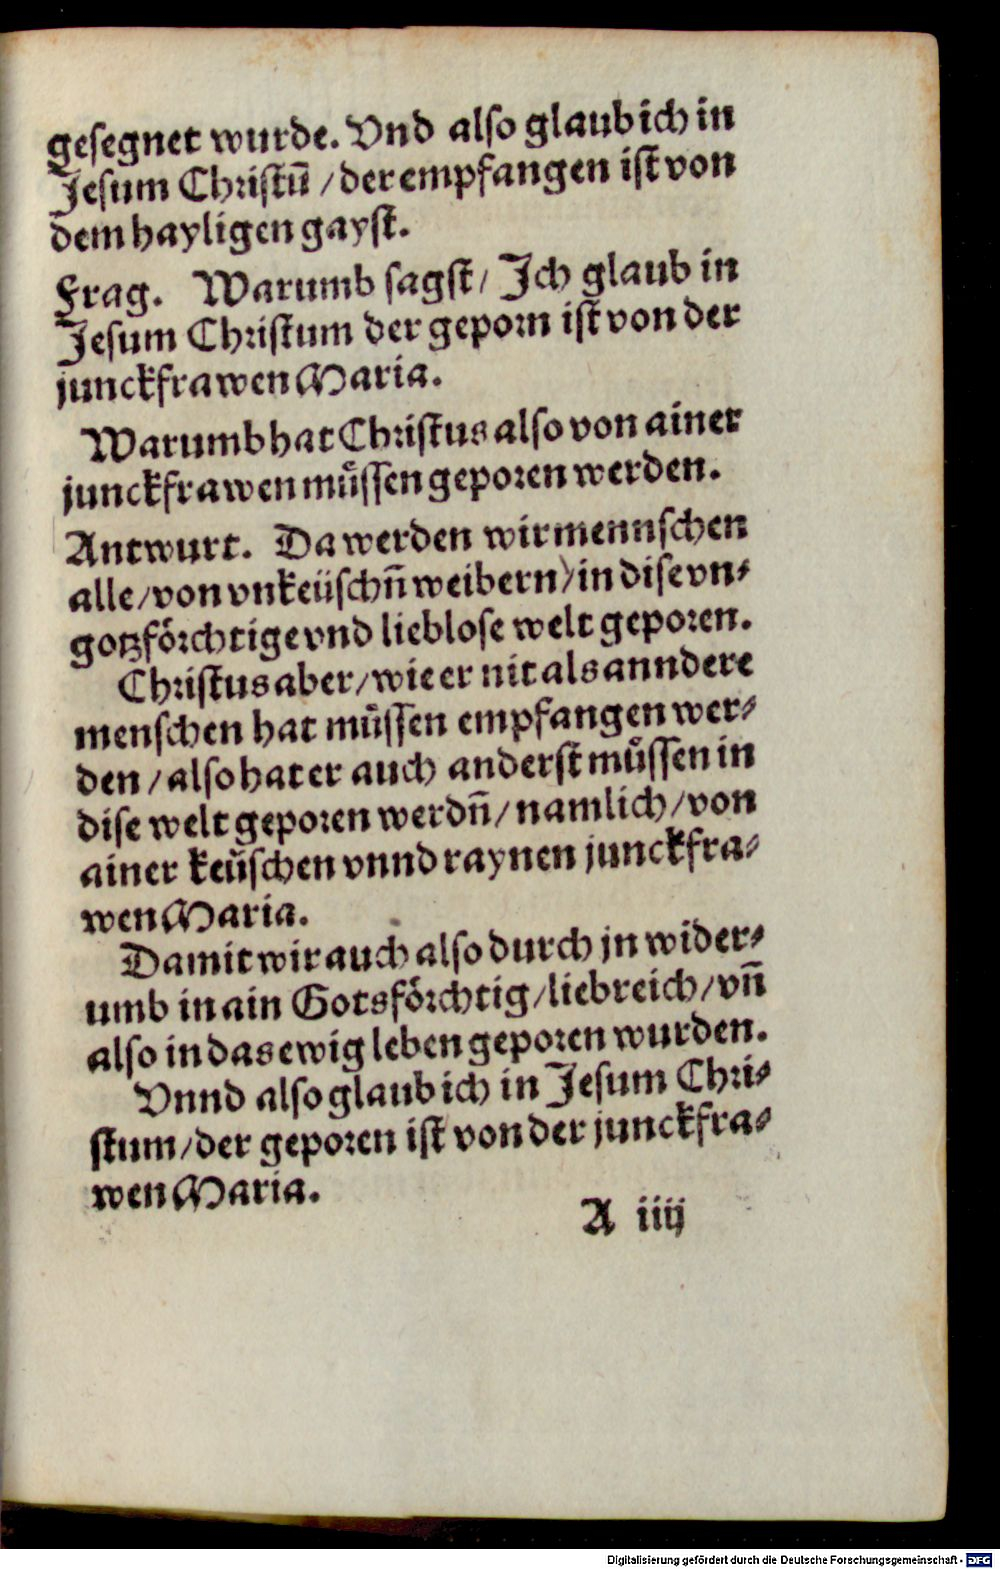 gesegnet wurde. Vnd also glaub ich in
Jesum Christū / der empfangen ist von
dem hayligen gayst.
Frag. Warumb sagst / Ich glaub in
Jesum Christum der geporn ist von der
junckfrawen Maria.
Warumb hat Christus also von ainer
junckfrawen muͤssen geporen werden.
Antwurt. Da werden wir mennschen
alle / von vnkeüschn̄ weibern / in dise vn⸗
gotzfoͤrchtige vnd lieblose welt geporen.
Christus aber / wie er nit als anndere
menschen hat muͤssen empfangen wer⸗
den / also hat er auch anderst muͤssen in
dise welt geporen werdn̄ / namlich / von
ainer keüschen vnnd raynen junckfra⸗
wen Maria.
Damit wir auch also durch jn wider⸗
umb in ain Gotsfoͤrchtig / liebreich / vn̄
also in das ewig leben geporen wurden.
Vnnd also glaub ich in Jesum Chri⸗
stum / der geporen ist von der junckfra⸗
wen Maria.
A iiij
Digitalisierung gefördert durch die Deutsche Forschungsgemeinschaft - DFG